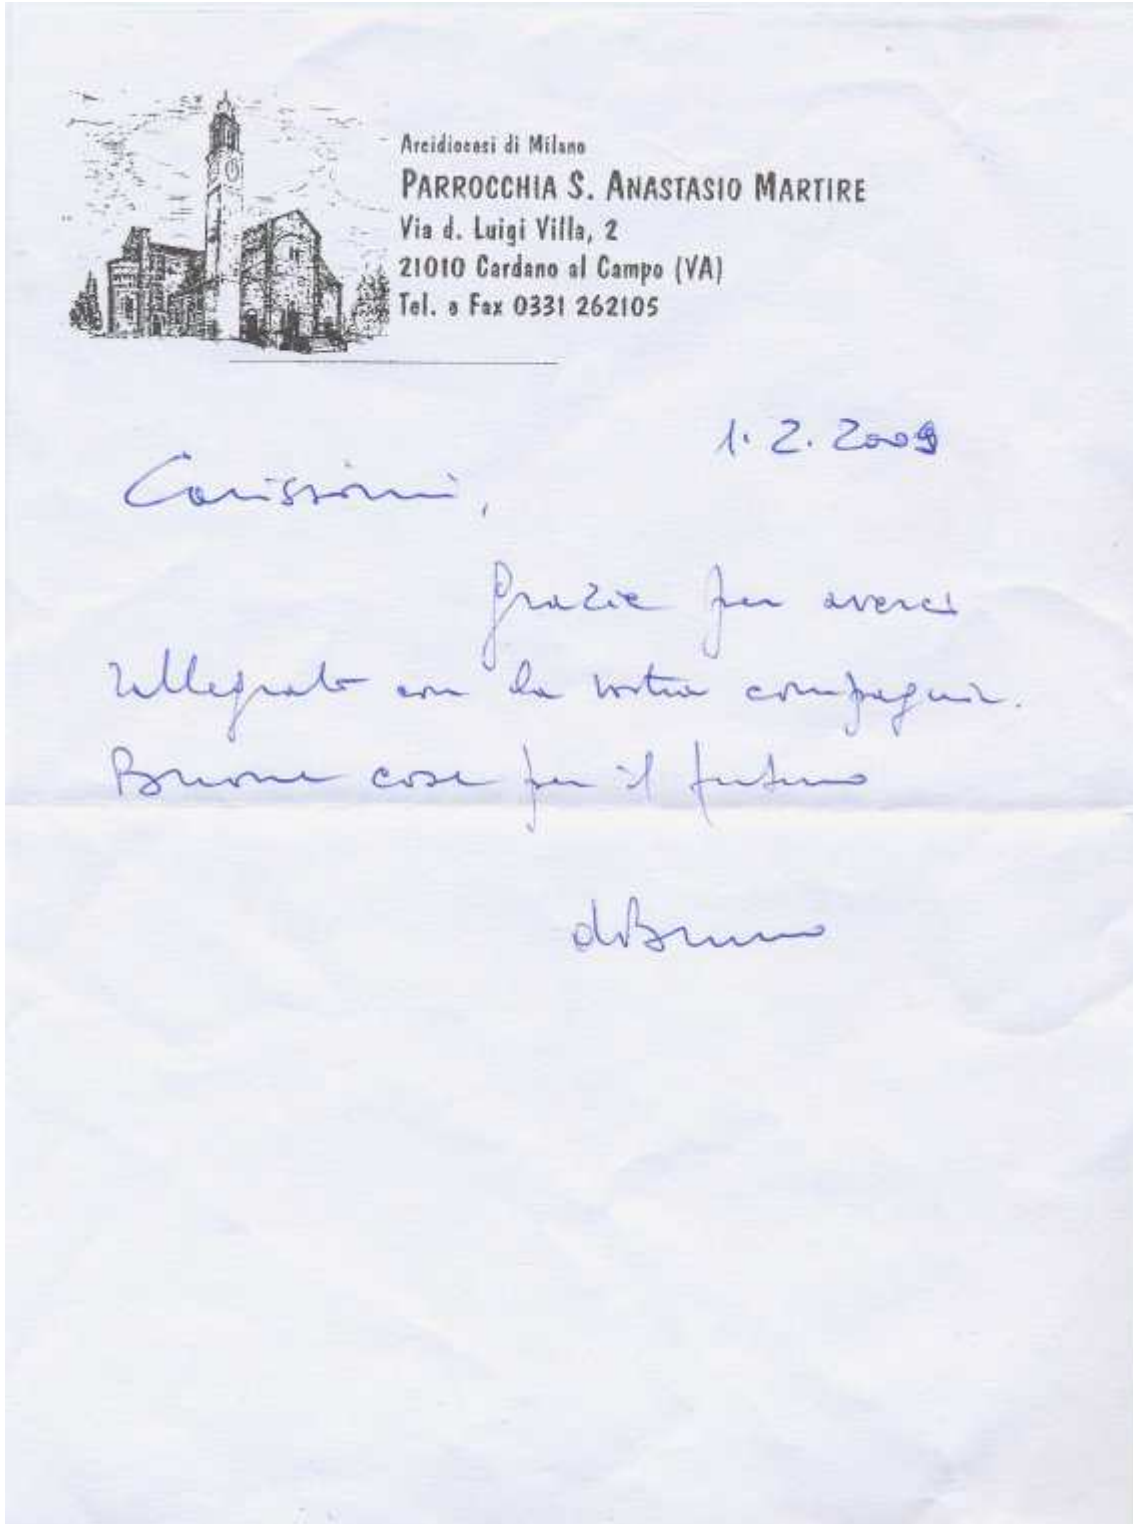 Arcidiocesi di Milano
PARROCCHIA S. ANASTASIO MARTIRE
Via d. Luigi Villa, 2
21010 Cardano al Campo (VA)
Tel. e Fax 0331 262105
1. 2. 2009
Carissimi,
Grazie per averci
rallegrato con la vostra compagnia.
Buone cose per il futuro
d. Bruno